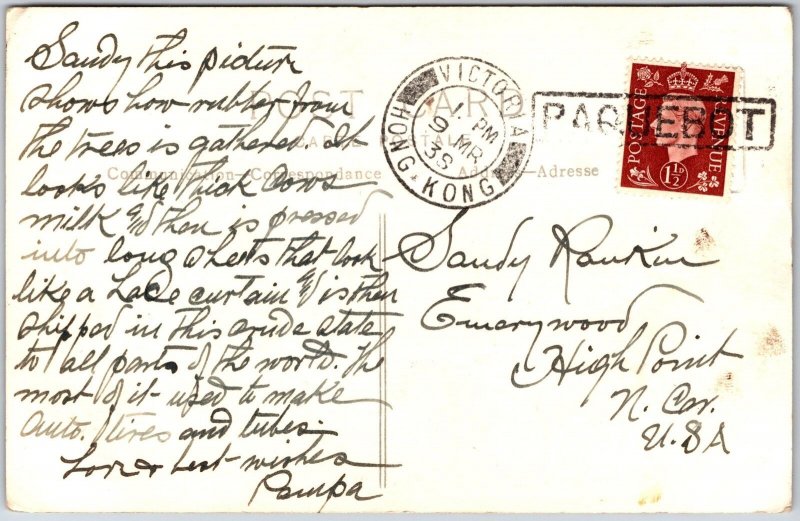 Sandy this picture
shows how rubber from
the trees is gathered. It
looks like thick cows
milk and then is pressed
into long sheets that look
like a Lace curtain and is then
shipped in this crude state
to all parts of the world. The
most of it used to make
Auto. tires and tubes.
Love & best wishes
Pampa
POST CARD
Communication—Correspondance
Address—Adresse
VICTORIA
1. PM
9 MR
38
HONG KONG
PAQUEBOT
POSTAGE
REVENUE
1½D
Sandy Rankin
Emerywood
High Point
N. Car.
U.S.A